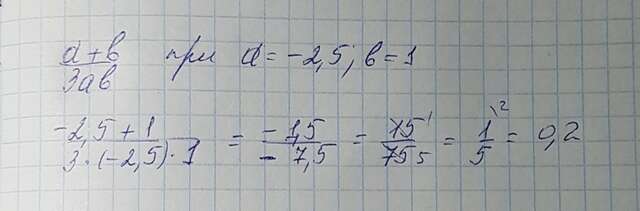 a+b
3ab при a = -2,5; b = 1
-2,5 + 1
3·(-2,5)·1 = -1,5
- 7,5 = 15 1
75 5 = 1 \2
5 = 0,2